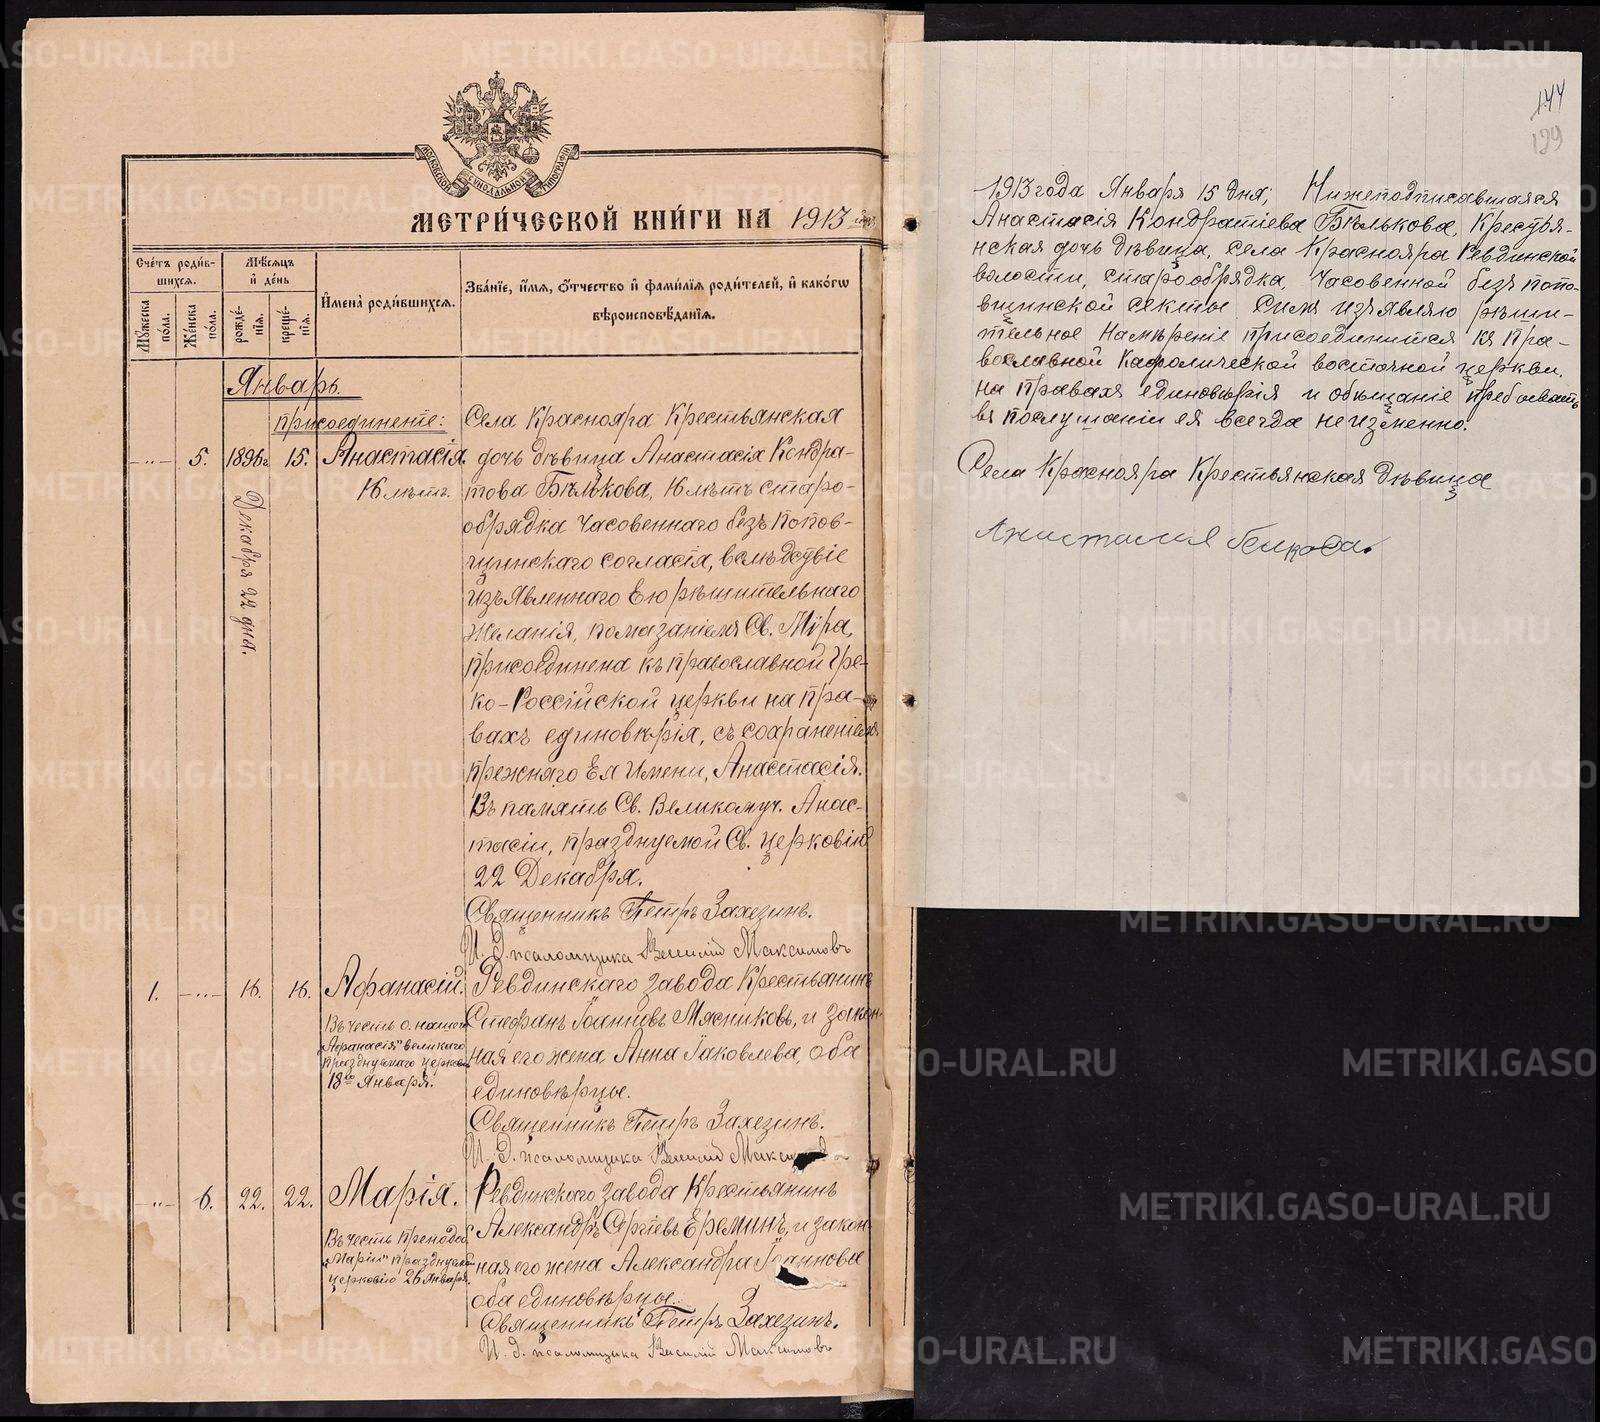 МЕТРИ́ЧЕСКОЙ КНИ́ГИ НА 1913
МОСКОВСКОЙ СѴНОДАЛЬНОЙ ТИПОГРАФІИ
Сче́тъ роди́в-
шихся.
Мꙋ́жеска по́ла.
Же́нска по́ла.
Мѣ́сяцъ
и҆ де́нь
рожде́-
нїя.
креще́-
нїя.
И҆мена̀ роди́вшихся.
Зва́нїе, и҆́мя, ѻ҆́тчество и҆ фами́лїя роди́телей, и҆ како́гѡ
вѣроисповѣ́данїя.
Январь.
присоединеніе:
-„- 5. 1896г. 15. Анастасія
16 лѣтъ.
Декабря 22 дня.
Села Краснояра Крестьянская
дочь дѣвица Анастасія Кондра-
това Бѣлькова, 16 лѣтъ старо-
обрядка часовеннаго безъ попов-
щинскаго согласія, вслѣдствіе
изъявленнаго Ею рѣшительнаго
желанія, помазаніемъ Св. Мѵра,
присоединена къ православной Гре-
ко-Россійской церкви на пра-
вахъ единовѣрія, съ сохраненіемъ
прежняго Ея имени, Анастасія.
Въ память Св. Великомуч. Анас-
тасіи, празднуемой Св. церковію
22 Декабря.
Священникъ Петръ Захезинъ.
И. д. псаломщика Василій Максимовъ
1. -„- 16. 16. Афанасій.
Въ честь о. нашего
„Афанасія" великаго
празднуемаго церков.
18го Января.
Ревдинскаго завода Крестьянинъ
Стефанъ Іоанновъ Мясниковъ, и закон-
ная его жена Анна Іаковлева оба
единовѣрцы.
Священникъ Петръ Захезинъ.
И. д. псаломщика Василій
-„- 6. 22. 22. Марія.
Въ честь препод.
„Маріи" празднуемой
церковію 26 Января.
Ревдинскаго завода Крестьянинъ
Александръ Сергіевъ Ереминъ, и закон
ная его жена Александра Іоаннова
оба единовѣрцы.
Священникъ Петръ Захезинъ.
И. д. псаломщика Василій Максимовъ
144
129
1913 года Января 15 дня; Нижеподписавшаяся
Анастасія Кондратіева Бѣлькова, Крестья-
нская дочь дѣвица, села Краснояра Ревдинской
волости, старообрядка, Часовенной безъ попо-
вщинской секты. Симъ изъявляю рѣши-
тельное намѣреніе присоединится къ Пра-
вославной Кафолической восточной церкви.
на правахъ единовѣрія и обѣщаніе пребывать
въ послушаніи ея всегда неизменно.
Села Краснояра Крестьянская дѣвица
Анастасия белкова.
METRIKI.GASO-URAL.RU